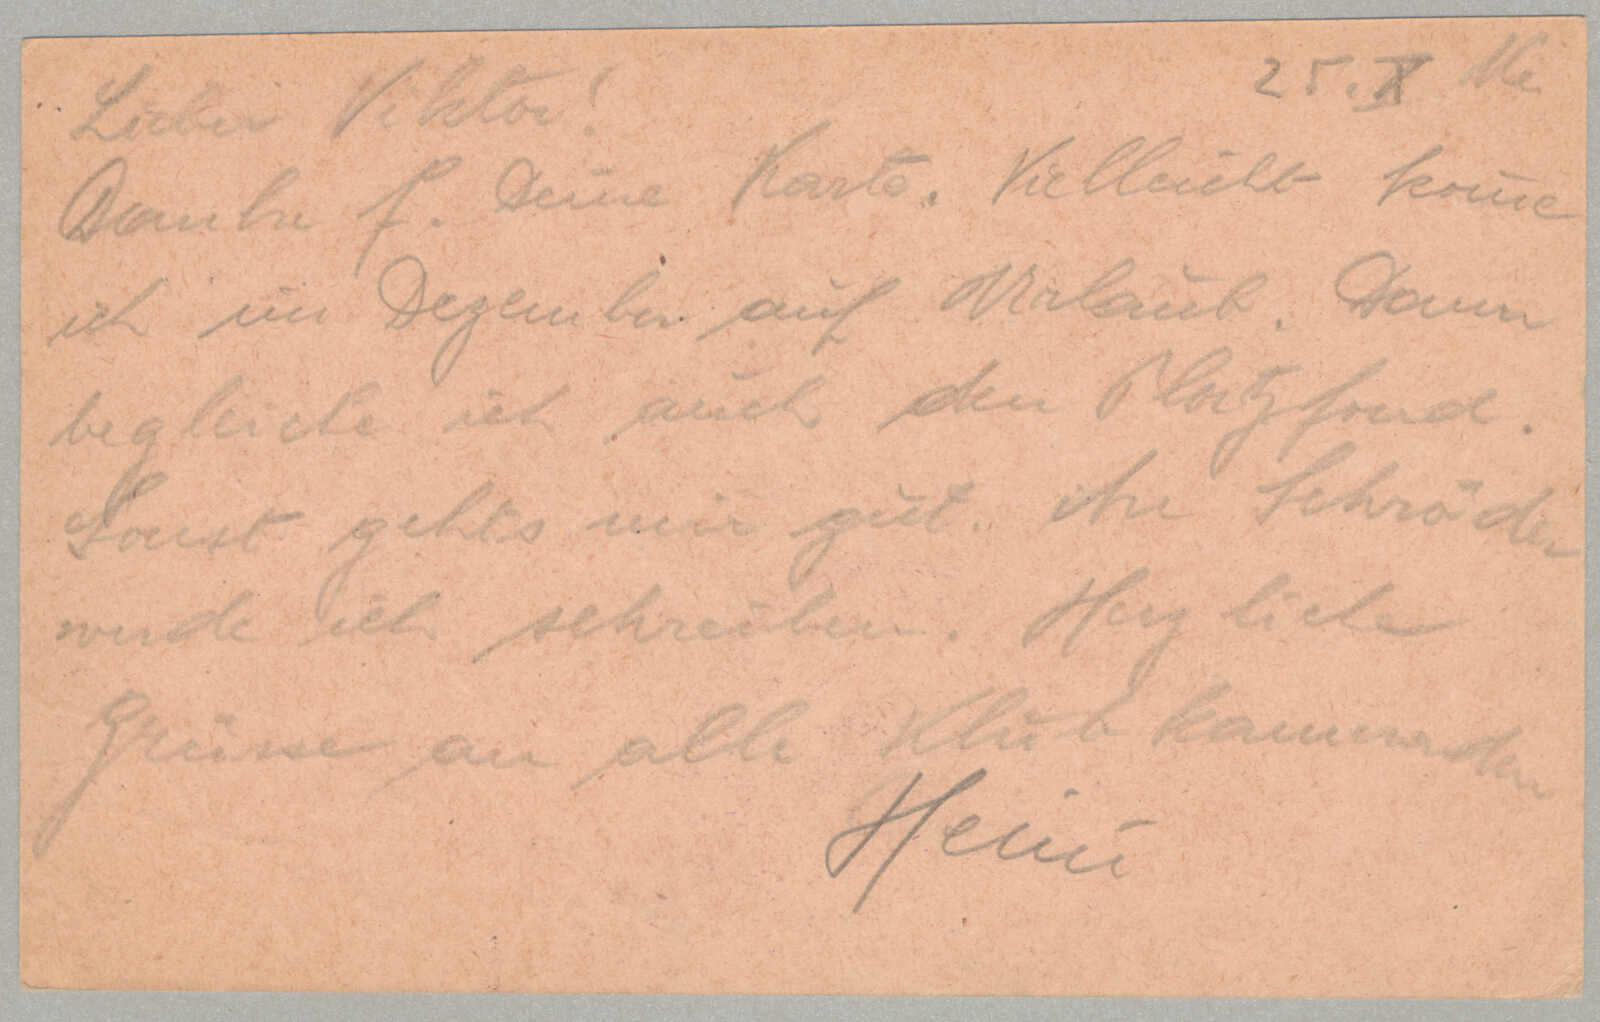 25. X
Lieber Viktor!
Danke f. Deine Karte. Vielleicht kom̄e
ich im Dezember auf Urlaub. Dann
begleiche ich auch den Platzfond.
Sonst gehts mir gut. An Schröder
werde ich schreiben. Herzliche
Grüsse an alle Klubkameraden
Heini